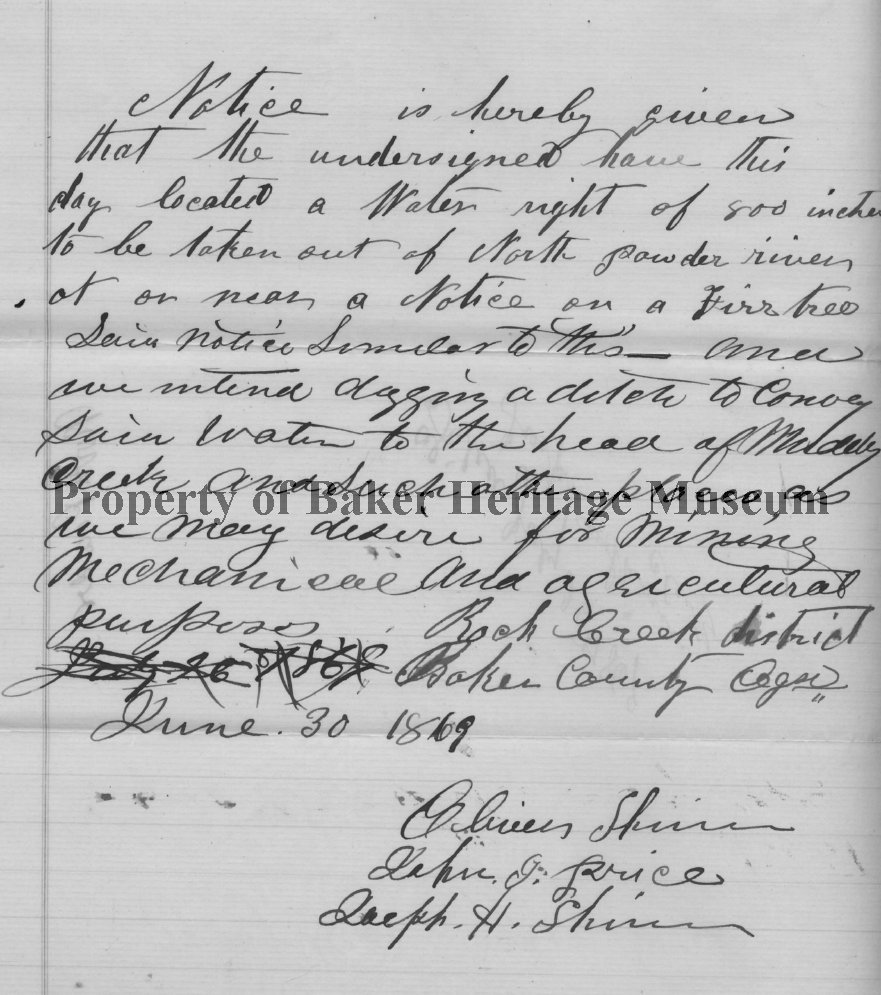 Notice is hereby given
that the undersigned have this
day located a Water right of 800 inches
to be taken out of North powder river
at or near a Notice on a Firr tree
Said Notice Similar to this — and
we intend digging a ditch to Convey
Said Water to the head of Muddy
Creek and such other places as
Property of Baker Heritage Museum
we may desire for Mining
Mechanical and agricultural
purposes Rock Creek district
Baker County Ogn
June. 30 1869
Oliver Shinn
John. J. Price
Joseph. H. Shinn